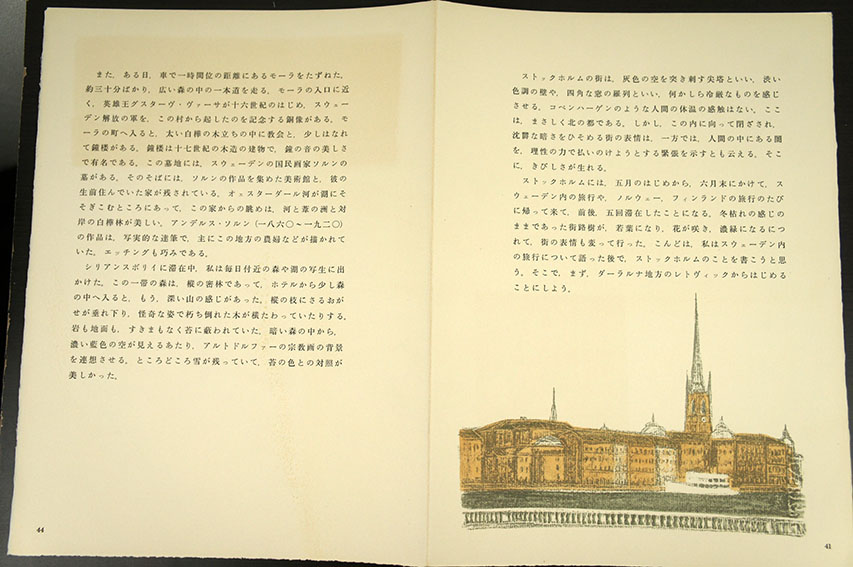 また，ある日，車で一時間位の距離にあるモーラをたずねた。
約三十分ばかり，広い森の中の一本道を走る。モーラの入口に近
く，英雄王グスターヴ・ヴァーサが十六世紀のはじめ，スウェー
デン解放の軍を，この村から起したのを記念する銅像がある。モ
ーラの町へ入ると，太い白樺の木立ちの中に教会と，少しはなれ
て鐘楼がある。鐘楼は十七世紀の木造の建物で，鐘の音の美しさ
で有名である。この墓地には，スウェーデンの国民画家ソルンの
墓がある。そのそばには，ソルンの作品を集めた美術館と，彼の
生前住んでいた家が残されている。オェスターダール河が湖にそ
そぎこむところにあって，この家からの眺めは，河と葦の洲と対
岸の白樺林が美しい。アンデルス・ソルン（一八六〇〜一九二〇）
の作品は，写実的な達筆で，主にこの地方の農婦などが描かれて
いた。エッチングも巧みである。
シリアンスボリイに滞在中，私は毎日付近の森や湖の写生に出
かけた。この一帯の森は，樅の密林であって，ホテルから少し森
の中へ入ると，もう，深い山の感じがあった。樅の枝にさるおが
せが垂れ下り，怪奇な姿で朽ち倒れた木が横たわっていたりする。
岩も地面も，すきまもなく苔に蔽われていた。暗い森の中から，
濃い藍色の空が見えるあたり，アルトドルファーの宗教画の背景
を連想させる。ところどころ雪が残っていて，苔の色との対照が
美しかった。
44
ストックホルムの街は，灰色の空を突き刺す尖塔といい，渋い
色調の壁や，四角な窓の羅列といい，何かしら冷厳なものを感じ
させる。コペンハーゲンのような人間の体温の感触はない。ここ
は，まさしく北の都である。しかし，この内に向って閉ざされ，
沈鬱な暗さをひそめる街の表情は，一方では，人間の中にある闇
を，理性の力で払いのけようとする緊張を示すとも云える。そこ
に，きびしさが生れる。
ストックホルムには，五月のはじめから，六月末にかけて，ス
ウェーデン内の旅行や，ノルウェー，フィンランドの旅行のたび
に帰って来て，前後，五回滞在したことになる。冬枯れの感じの
ままであった街路樹が，若葉になり，花が咲き，濃緑になるにつ
れて，街の表情も変って行った。こんどは，私はスウェーデン内
の旅行について語った後で，ストックホルムのことを書こうと思
う。そこで，まず，ダーラルナ地方のレトヴィックからはじめる
ことにしよう。
41